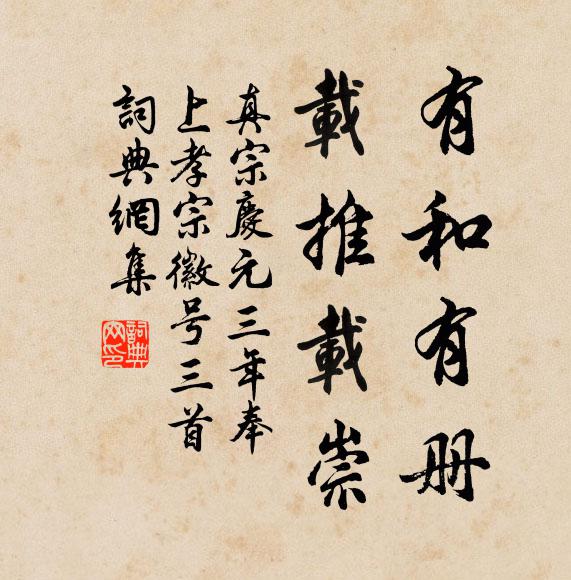 有和有册
載推載崇
真宗慶元三年奉
上孝宗徽号三首
詞典網集
詞典网印